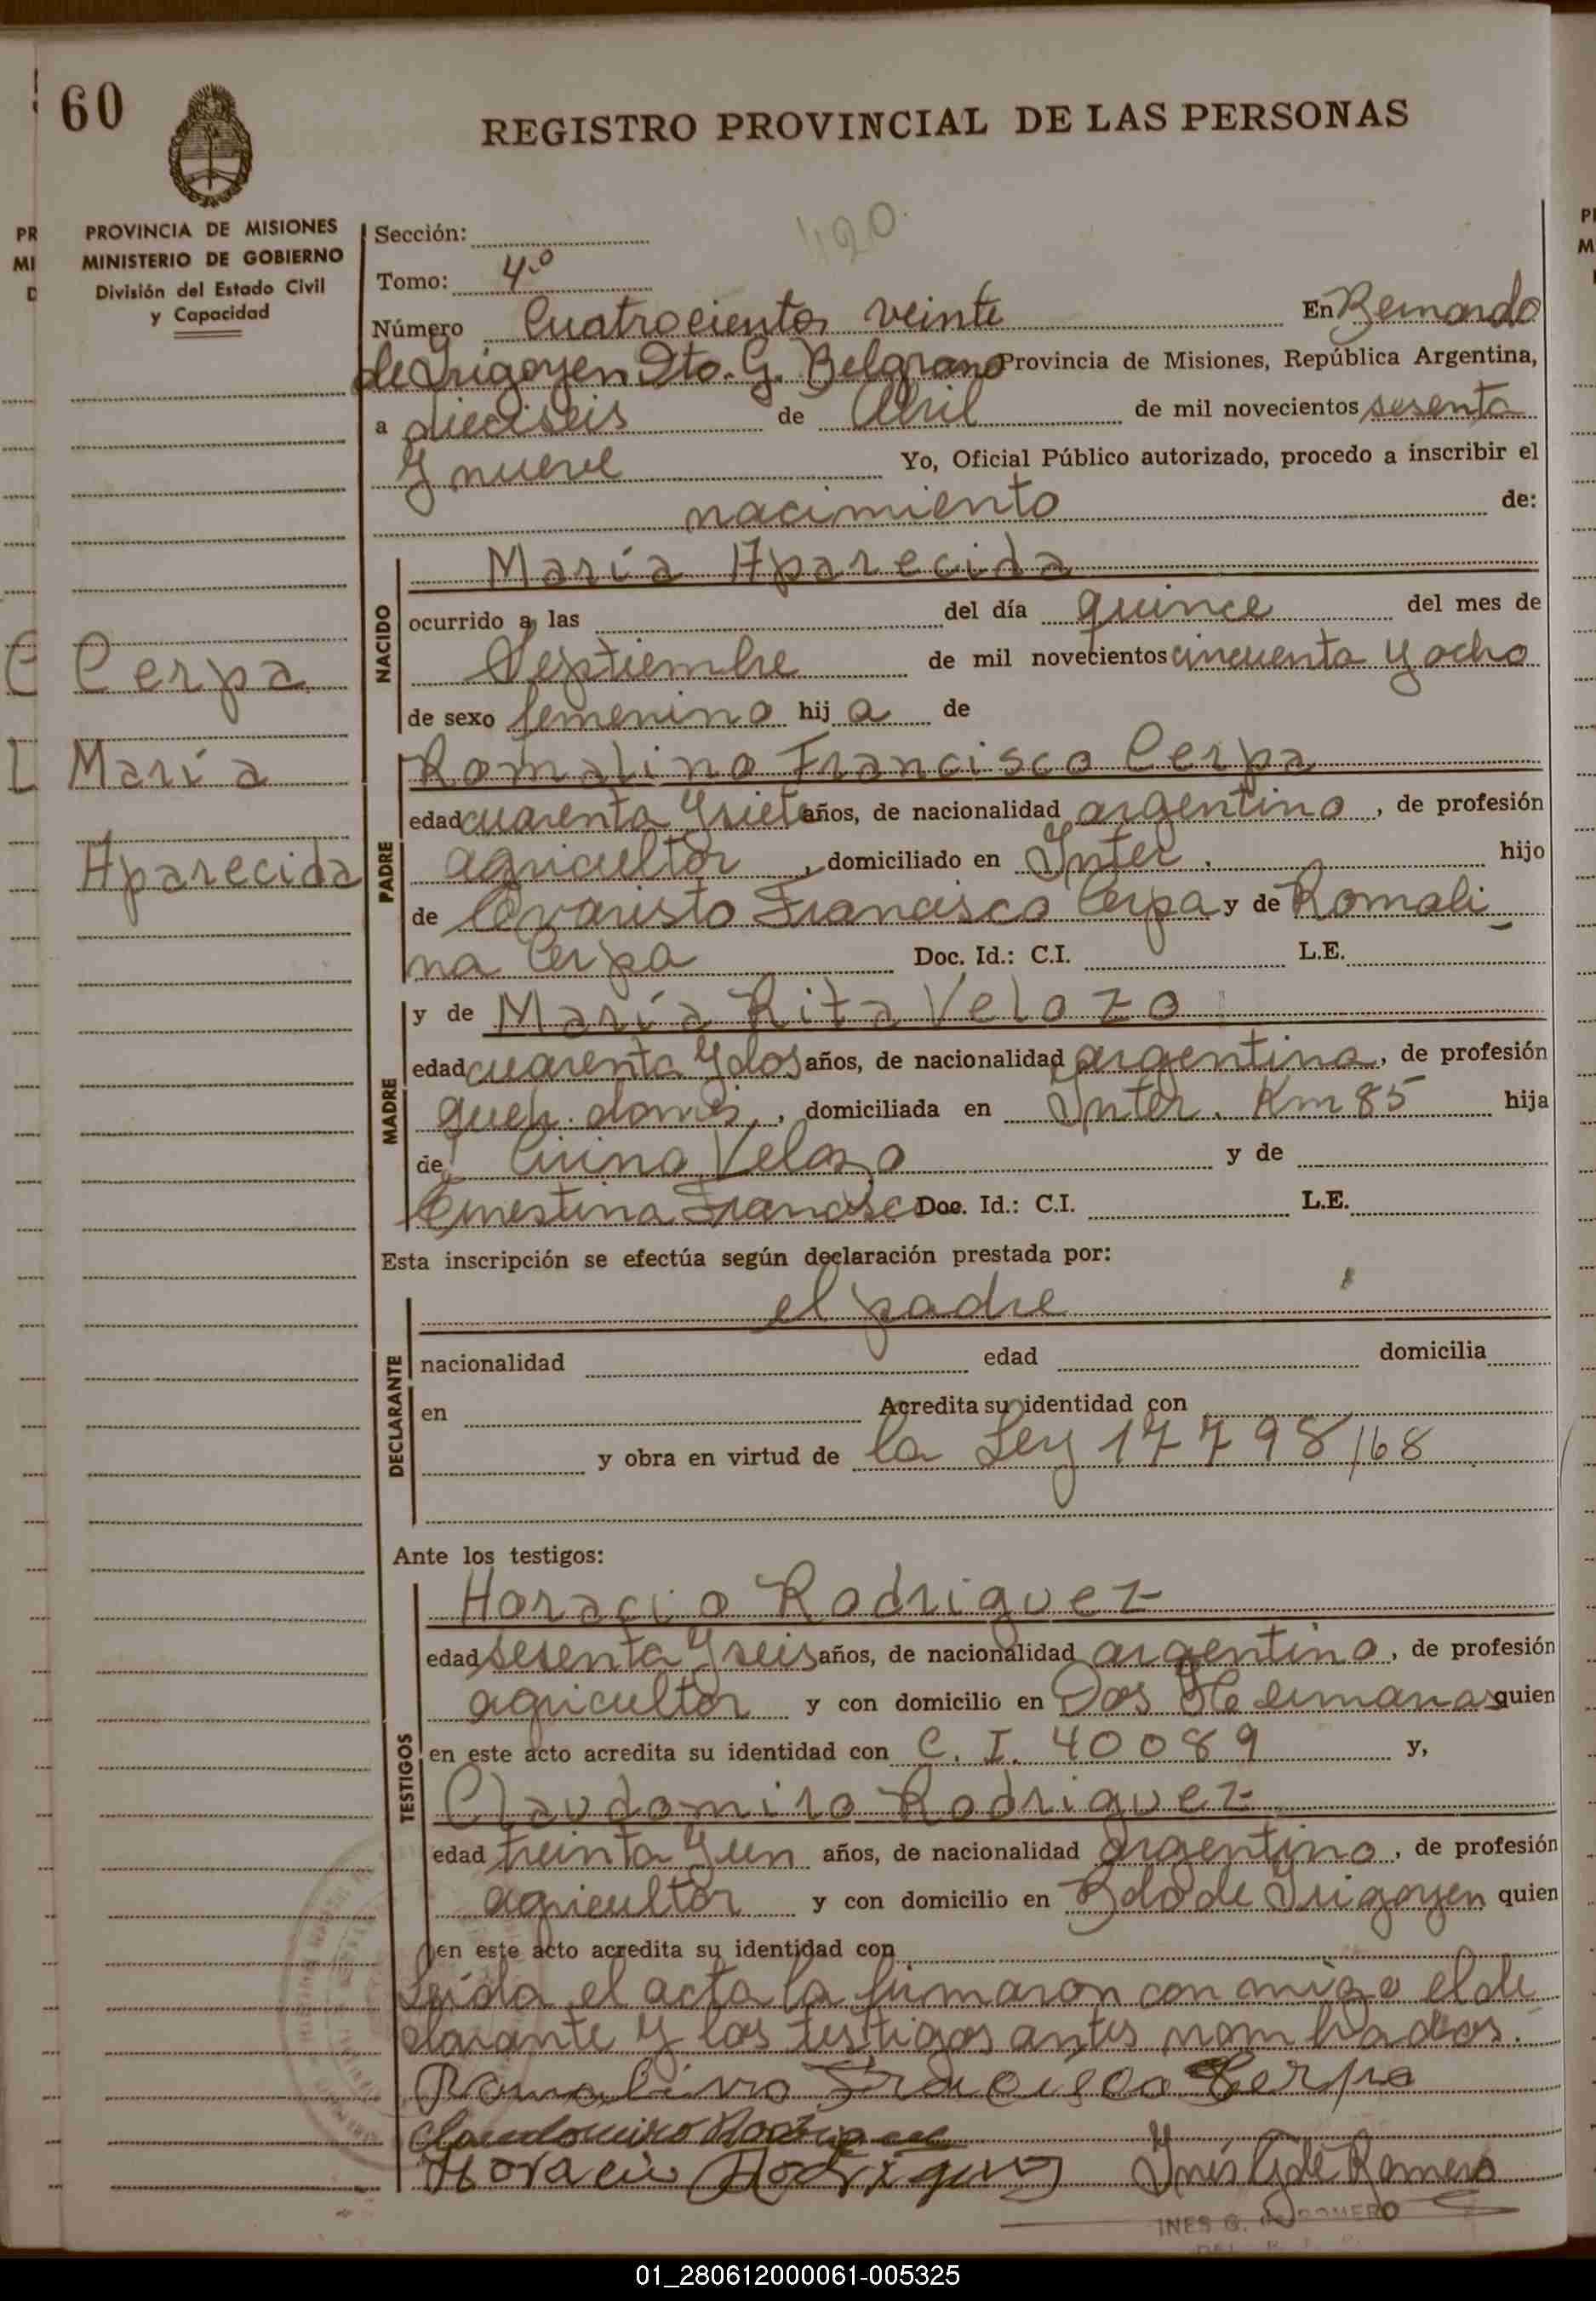 60
REGISTRO PROVINCIAL DE LAS PERSONAS
PROVINCIA DE MISIONES
MINISTERIO DE GOBIERNO
División del Estado Civil
y Capacidad
420
Sección:
Tomo: 4.º
Número Cuatrocientos veinte En Bernardo
de Irigoyen Dto. G. Belgrano Provincia de Misiones, República Argentina,
a dieciseis de Abril de mil novecientos sesenta
y nueve Yo, Oficial Público autorizado, procedo a inscribir el
nacimiento de:
NACIDO
María Aparecida
ocurrido a las del día quince del mes de
Septiembre de mil novecientos cincuenta y ocho
de sexo femenino hij a de
Cerpa
María
Aparecida
PADRE
Romalino Francisco Cerpa
edad cuarenta y siete años, de nacionalidad argentino, de profesión
agricultor, domiciliado en Inter. hijo
de Evaristo Francisco Cerpa y de Romali
na Cerpa Doc. Id.: C.I. L.E.
MADRE
y de María Rita Velozo
edad cuarenta y dos años, de nacionalidad argentina, de profesión
queh. domés, domiciliada en Inter. Km 85 hija
de Velozo y de
Ernestina Francisco Doc. Id.: C.I. L.E.
Esta inscripción se efectúa según declaración prestada por:
DECLARANTE
el padre
nacionalidad edad domicilia
en Acredita su identidad con
y obra en virtud de la Ley 17798/68
Ante los testigos:
TESTIGOS
Horacio Rodriguez
edad sesenta y seis años, de nacionalidad argentino, de profesión
agricultor y con domicilio en Dos Hermanas quien
en este acto acredita su identidad con C. I. 40089 y,
Claudomiro Rodriguez
edad treinta y un años, de nacionalidad argentino, de profesión
agricultor y con domicilio en Bdo de Irigoyen quien
en este acto acredita su identidad con
Leída el acta la firmaron con migo el de
clarante y los testigos antes nombrados.
Romalino Francisco Cerpa
Claudomiro Rodriguez
Horacio Rodriguez Inés G de Romero
INES G. de ROMERO
01_280612000061-005325